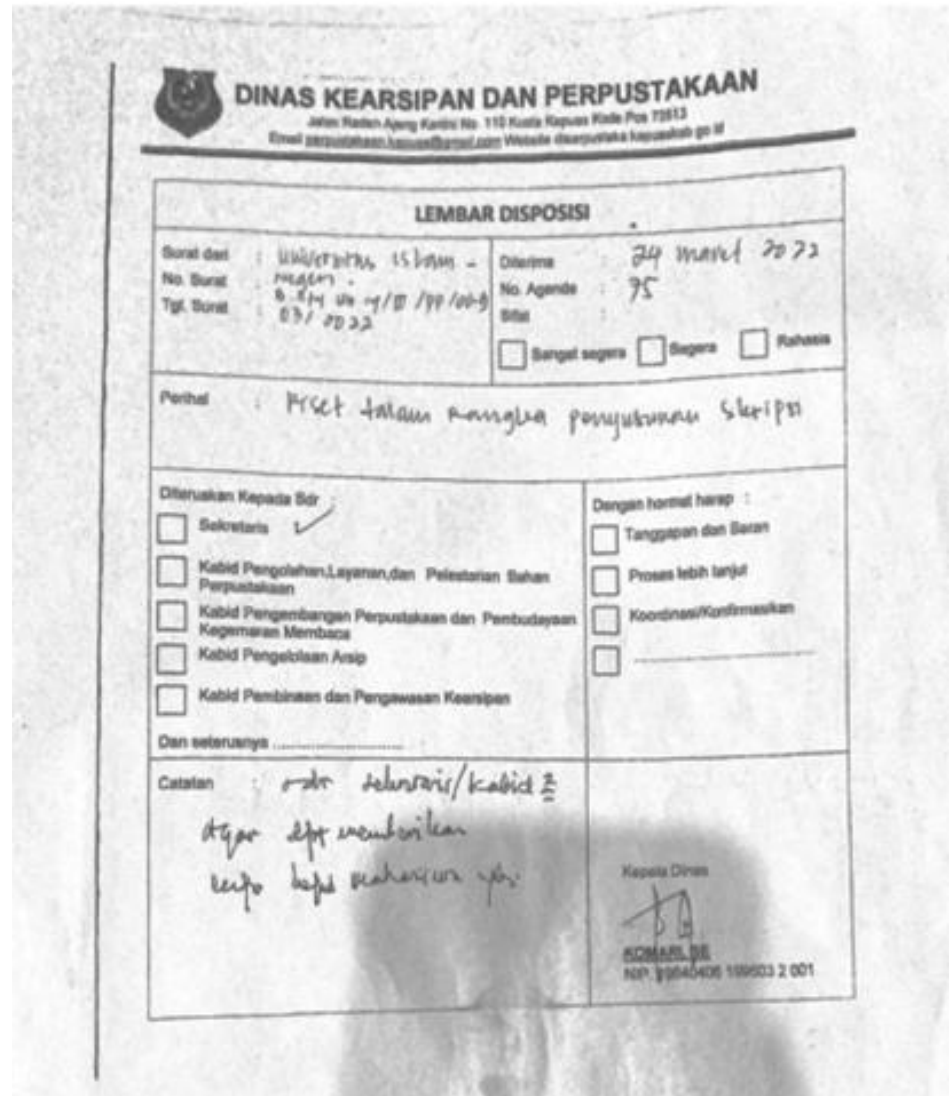 DINAS KEARSIPAN DAN PERPUSTAKAAN
Jalan Raden Ajeng Kartini No. 110 Kuala Kapuas Kode Pos 73513
Email Website
LEMBAR DISPOSISI
Surat dari : Universitas Islam -
Negeri .
No. Surat :
Tgl. Surat : 03/2022
Diterima : 24 maret 2022
No. Agenda : 75
Sifat :
Sangat segera Segera Rahasia
Perihal : Riset dalam rangka penyusunan skripsi
Diteruskan Kepada Sdr :
Sekretaris ✓
Kabid Pengolahan,Layanan,dan Pelestarian Bahan
Perpustakaan
Kabid Pengembangan Perpustakaan dan Pembudayaan
Kegemaran Membaca
Kabid Pengelolaan Arsip
Kabid Pembinaan dan Pengawasan Kearsipan
Dan seterusnya ..........................
Dengan hormat harap :
Tanggapan dan Saran
Proses lebih lanjut
Koordinasi/Konfirmasikan
Catatan : sdr sekretaris/kabid 2
agar dpt memberikan
mahasiswa ybs.
Kepala Dinas
KOMARI, SE
NIP. 19640406 199603 2 001